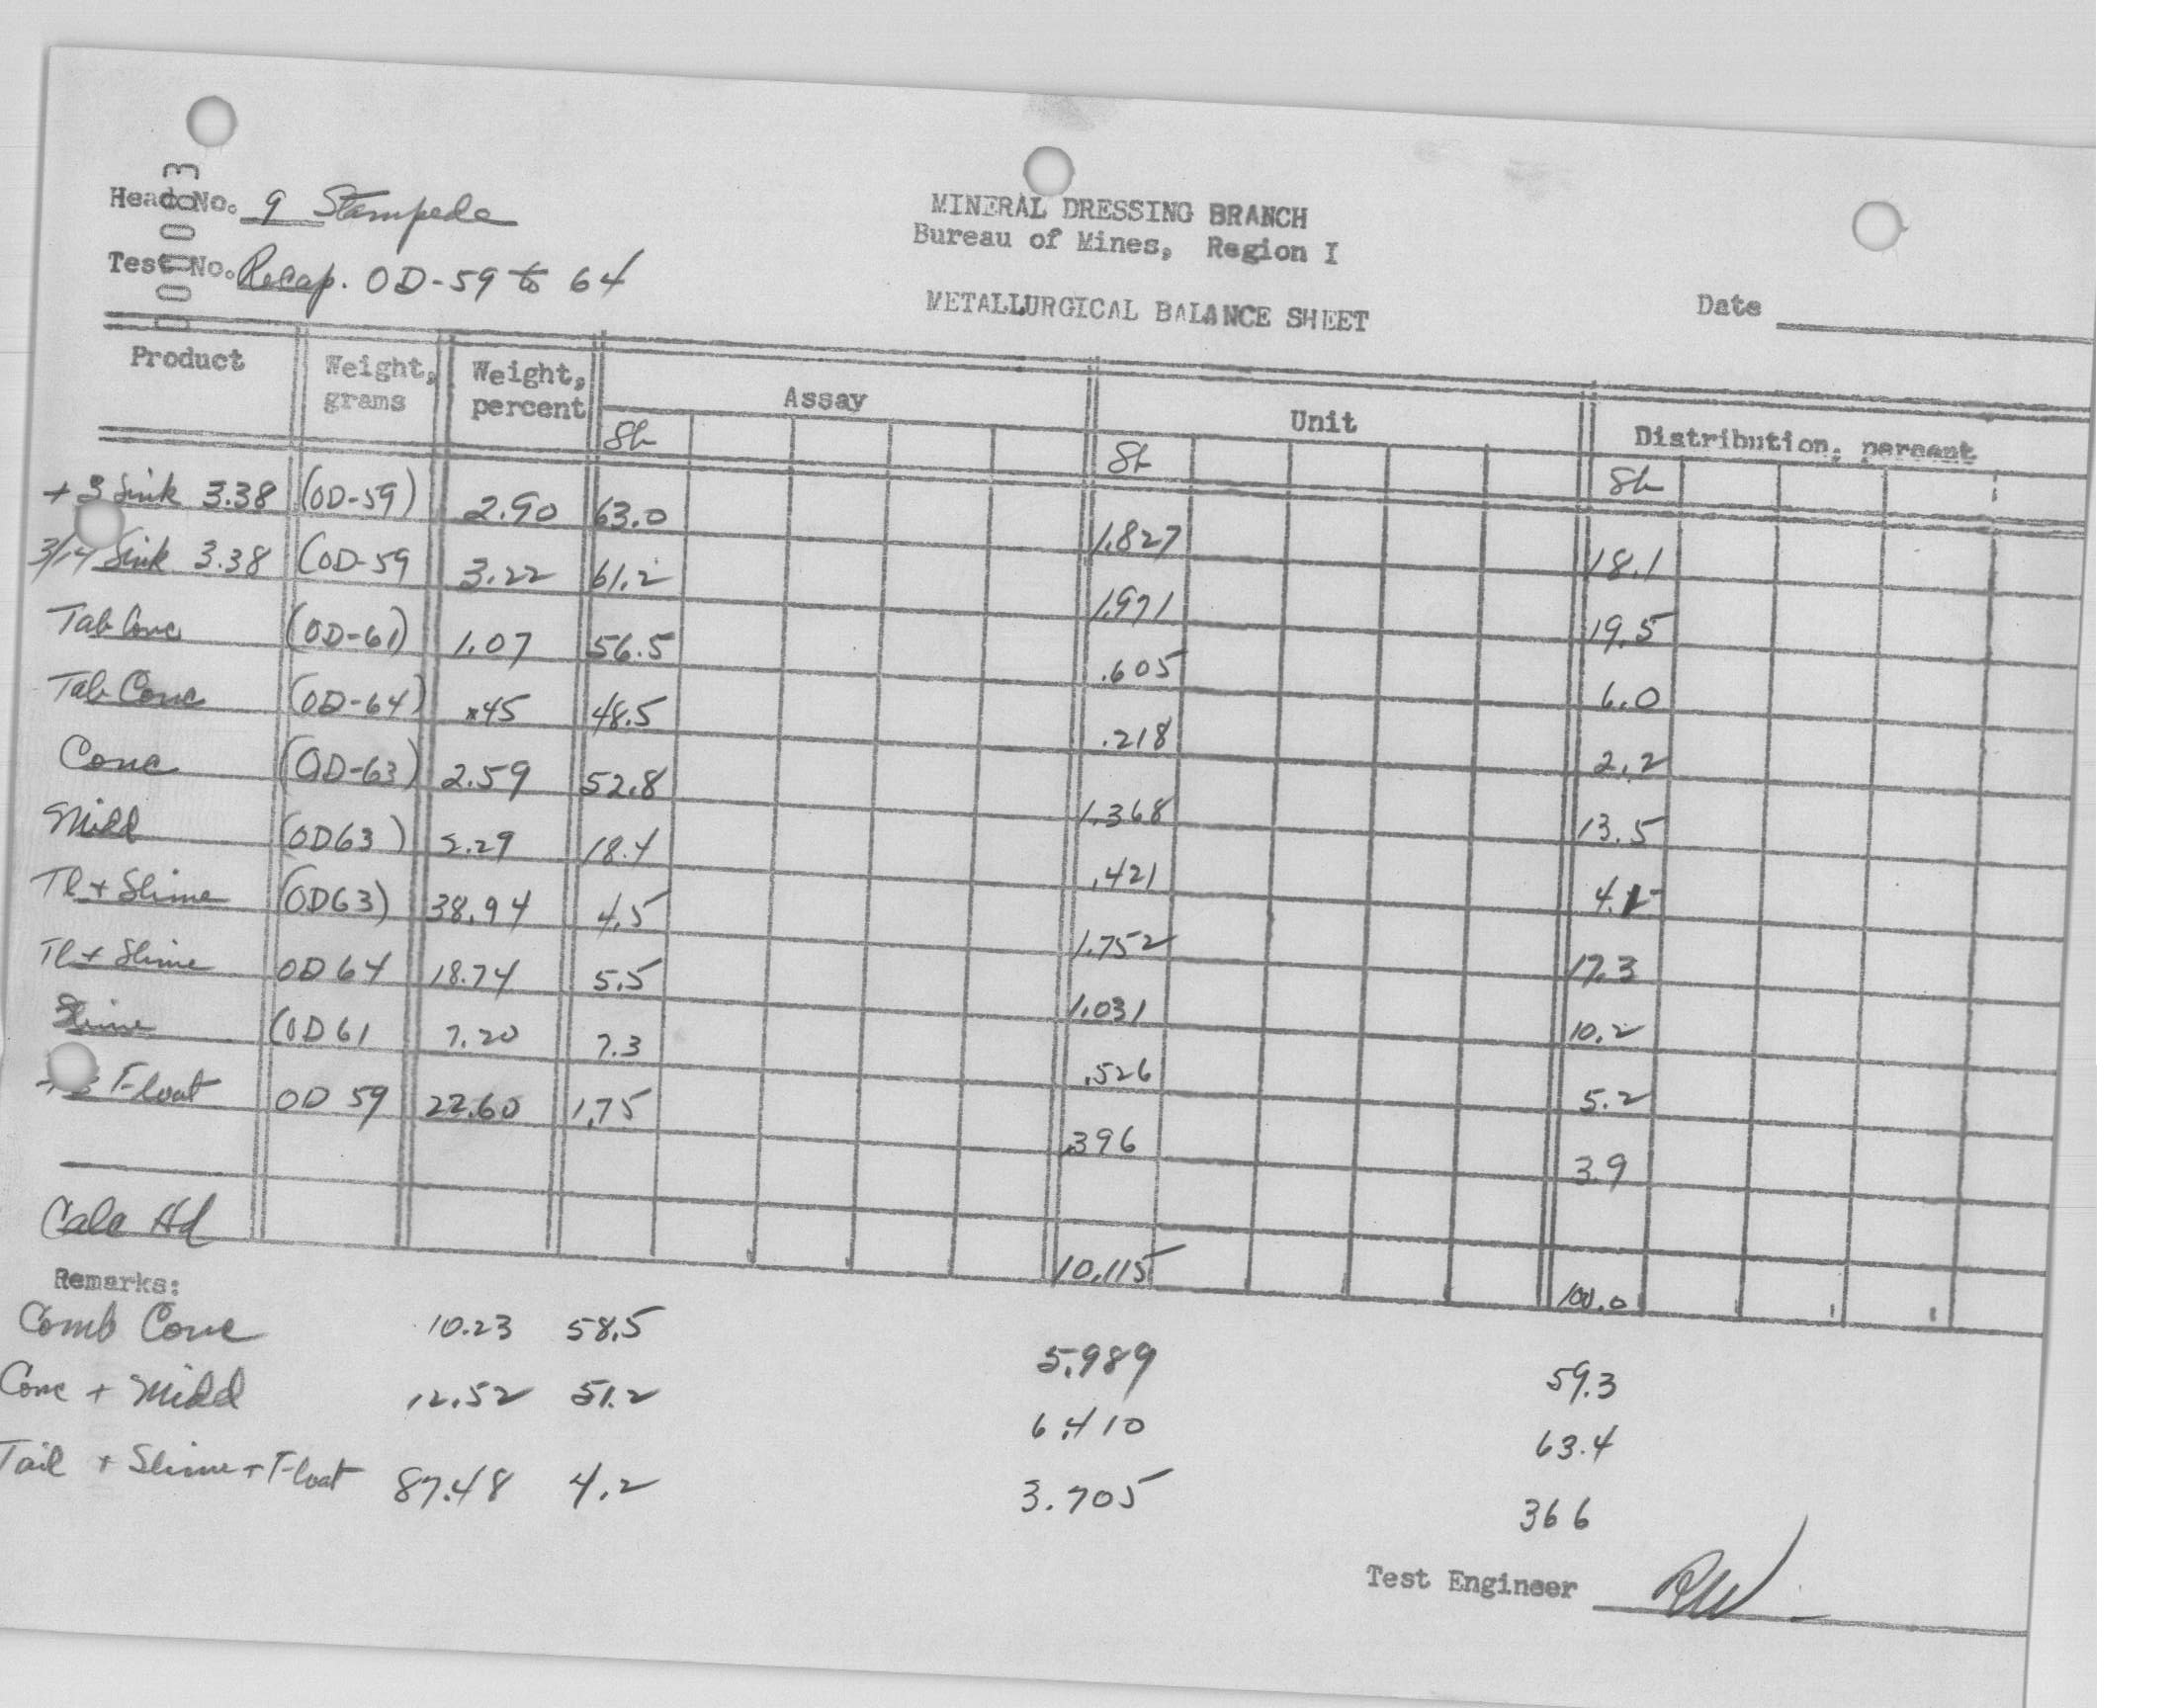 00003
Head No. 9 Stampede
Test No. Recap. OD-59 to 64
MINERAL DRESSING BRANCH
Bureau of Mines, Region I
METALLURGICAL BALANCE SHEET
Date
Product Weight, grams Weight, percent Assay Unit Distribution, percent
Sb Sb Sb
+3 Sink 3.38 (OD-59) 2.90 63.0 1.827 18.1
3/14 Sink 3.38 (OD-59 3.22 61.2 1.971 19.5
Tab Conc (OD-61) 1.07 56.5 .605 6.0
Tab Conc (OD-64) .45 48.5 .218 2.2
Conc (OD-63) 2.59 52.8 1.368 13.5
Midd (OD63) 2.29 18.4 .421 4.1
Tl + Slime (OD63) 38.94 4.5 1.752 17.3
Tl + Slime OD64 18.74 5.5 1.031 10.2
Slime (OD61 7.20 7.3 .526 5.2
+3 Float OD 59 22.60 1.75 .396 3.9
Calc Hd 10.115 100.0
Remarks:
Comb Conc 10.23 58.5 5.989 59.3
Conc + Midd 12.52 51.2 6.410 63.4
Tail + Slime + Float 87.48 4.2 3.705 36 6
Test Engineer RW